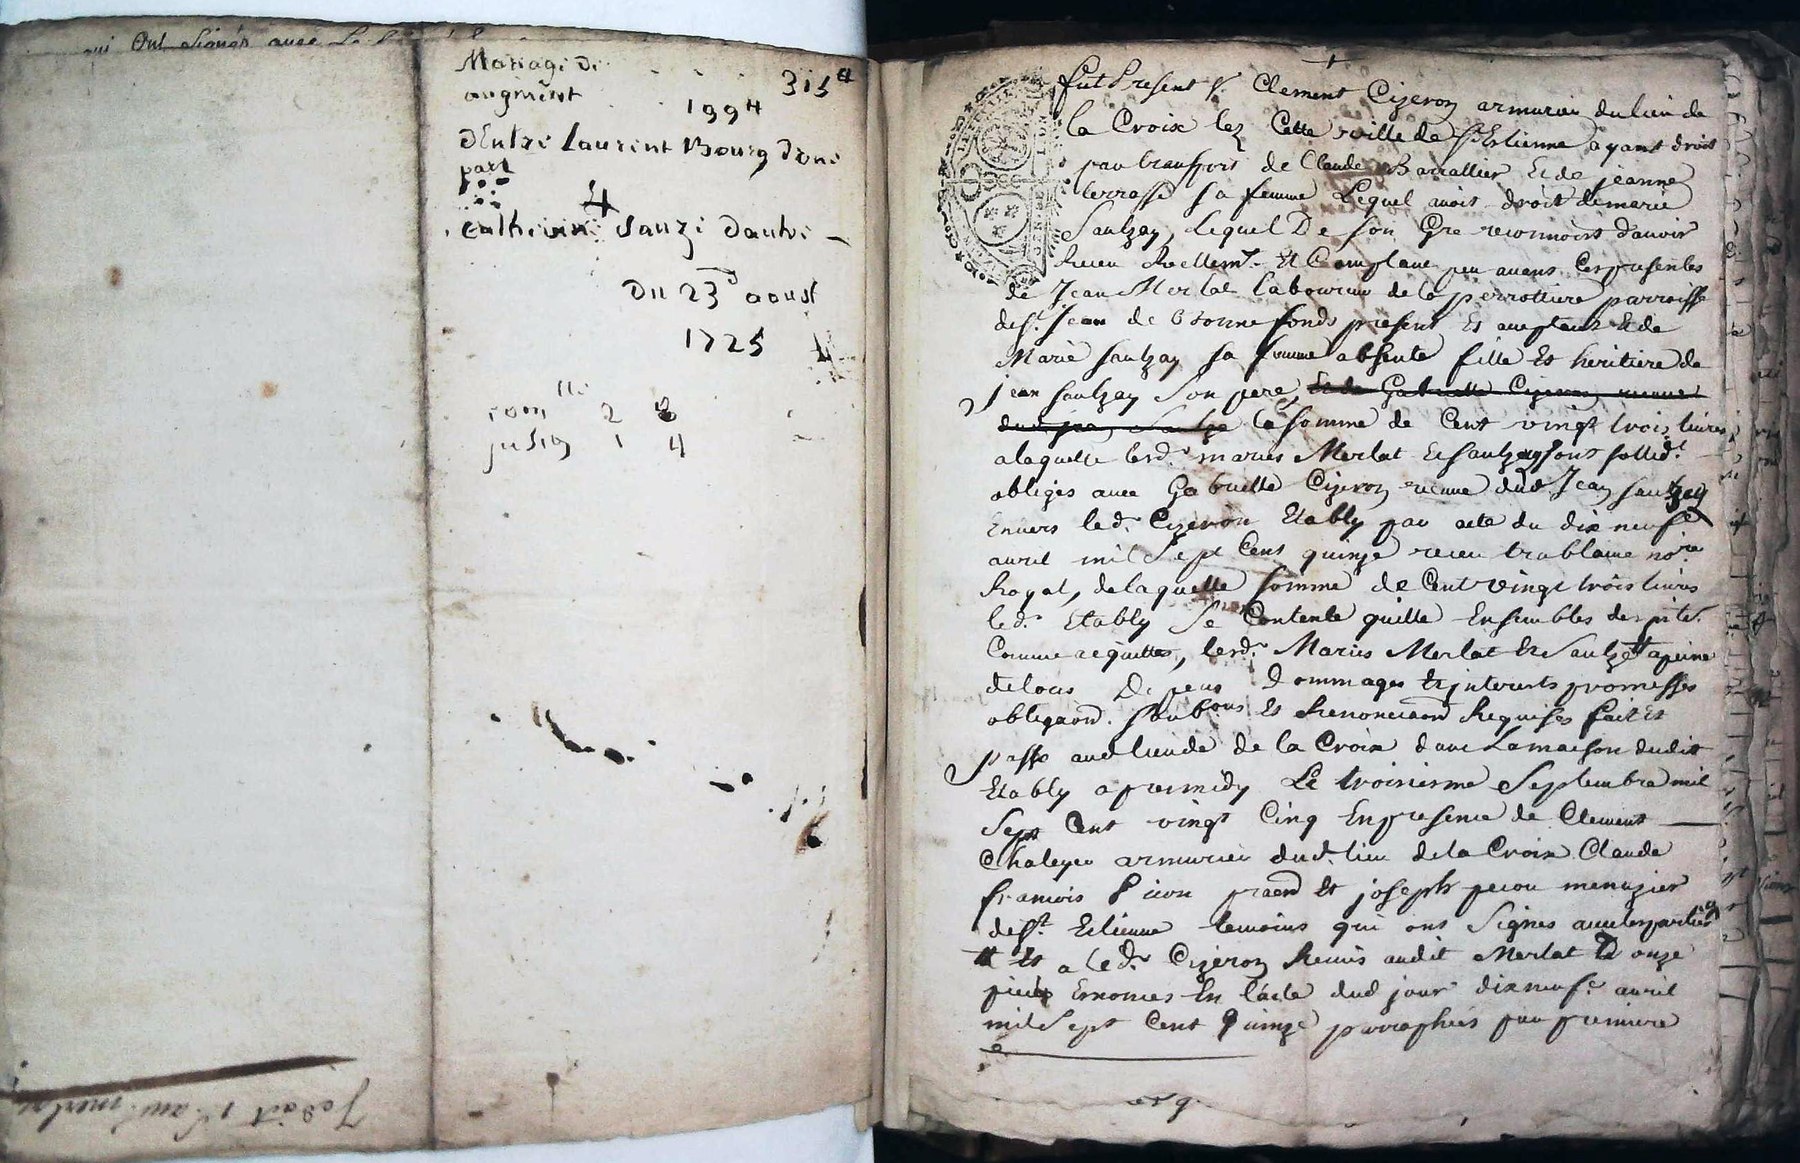 qui Ont signés avec Le
Mariage de
augment
315
1994
d'Entre Laurent Bourg d'une
part
catherine Sauze dautre
Du 23 aoust
1725
2 8
1 4
fut Present Sr. Clement Cizeron armurier du lieu de
la Croix lez Cette ville de St Estienne ayant droit
par transport de Claude Barallier Et de jeanne
terrasse sa femme Lequel avoit droit de marie
Sauzay, lequel De son Gre reconnoist d'avoir
Receu Reellemt. Et Comptant peu avans Ces presentes
de Jean Merlat laboureur de la perrotiere parroisse
de St. Jean de Bonnefonds present Et acceptant Et de
Marie Sauzay sa femme absente fille Et heritiere de
jean Sauzay son pere, Et de Gabrielle Cizeron veuve
dud. jean Sauze la somme de Cent vingt trois livres
a laquelle lesd. maries Merlat Et Sauzay sont sollidt.
obliges avec Gabrielle Cizeron veuve dud Jean Sauzay
Envers led. Cizeron Etably par acte du dix neufe
avril mil Sept Cens quinze receu tramblaine nore
Royal, de laquelle somme de Cent vingt trois livres
led. Etably Se Contente quitte Ensembles des pites.
Comme acquittes, lesd. Maries Merlat Et Sauze a peine
de tous Depens Dommages Et jnterests promesses
obligaon. soubons Et Renonciaon Requises fait Et
passe aud lieu de de la Croix dans La maison dudit
Etably apresmidy Le troisiesme Septembre mil
Sept Cent vingt Cinq En presence de Clement
Chaleyer armurier dud. lieu de la Croix Claude
francois Picon praen Et joseph picon menuzier
de St. Estienne temoins qui ont Signes avec les parties
Et a led. Cizeron Remis audit Merlat onze
pieces Enoncees En l'acte dud jour dix neufe. avril
mil Sept Cent Quinze parraphees par premiere